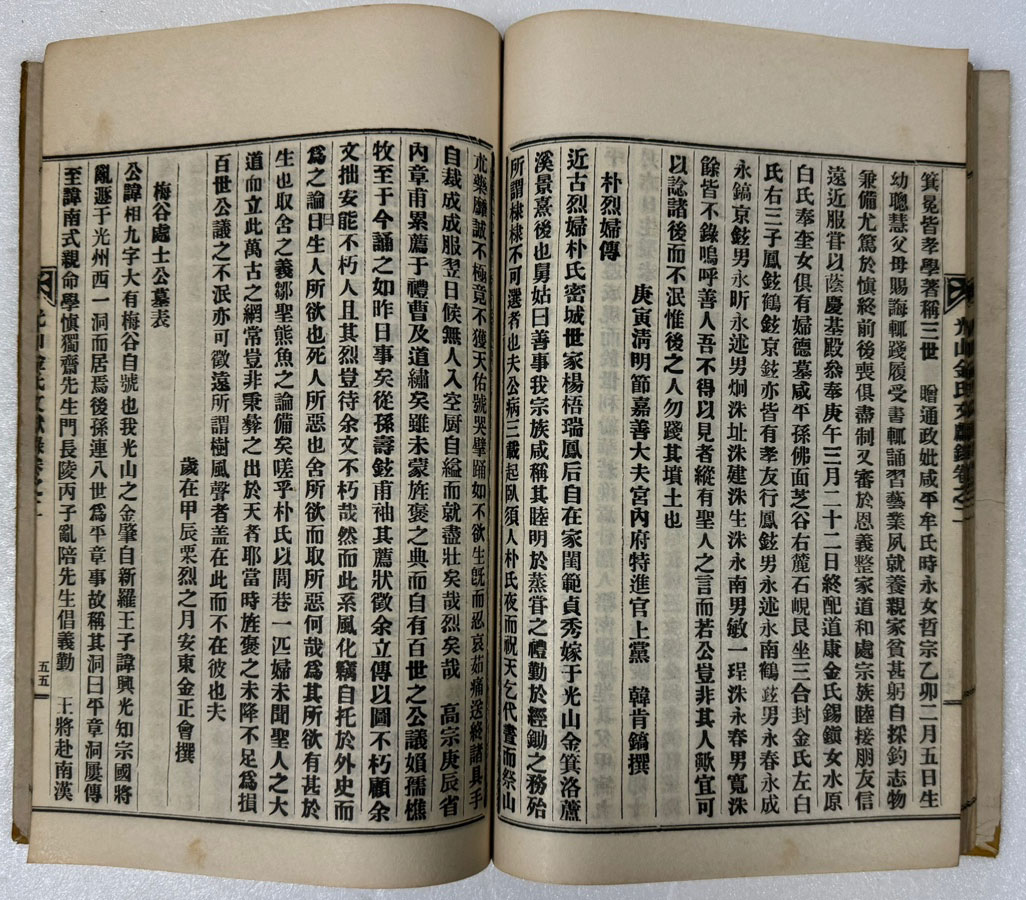 箕冕皆孝學著稱三世　贈通政妣咸平牟氏時永女哲宗乙卯二月五日生
幼聰慧父母賜誨輒踐履受書輒誦習藝業夙就養親家貧甚躬自採釣志物
兼備尤篤於愼終前後喪俱盡制又審於恩義整家道和處宗族睦接朋友信
遠近服嘗以蔭慶基殿叅奉庚午三月二十二日終配道康金氏錫鎭女水原
白氏奉奎女俱有婦德墓咸平孫佛面芝谷右麓石峴艮坐三合封金氏左白
氏右三子鳳鉉鶴鉉京鉉亦皆有孝友行鳳鉉男永述永南鶴鉉男永春永成
永鎬京鉉男永昕永述男炯洙址洙建洙生洙永南男敏一珵洙永春男寬洙
餘皆不錄嗚呼善人吾不得以見者縱有聖人之言而若公豈非其人歟宜可
以諗諸後而不泯惟後之人勿踐其墳土也
庚寅淸明節嘉善大夫宮內府特進官上黨　韓肯鎬撰
朴烈婦傳
近古烈婦朴氏密城世家楊梧瑞鳳后自在家閨範貞秀嫁于光山金箕洛蘆
溪景熹後也舅姑曰善事我宗族咸稱其睦明於蒸嘗之禮勤於經鋤之務殆
所謂棣棣不可選者也夫公病三載起臥須人朴氏夜而祝天乞代晝而祭山
朮藥靡誠不極竟不獲天佑號哭擘踊如不欲生旣而忍哀茹痛送終諸具手
自裁成成服翌日候無人入空厨自縊而就盡壯矣哉烈矣哉　高宗庚辰省
內章甫累薦于禮曹及道繡矣雖未蒙旌褒之典而自有百世之公議婦孺樵
牧至于今誦之如昨日事矣從孫壽鉉甫袖其薦狀徵余立傳以圖不朽顧余
文拙安能不朽人且其烈豈待余文不朽哉然而此系風化竊自托於外史而
爲之論曰生人所欲也死人所惡也舍所欲而取所惡何哉爲其所欲有甚於
生也取舍之義鄒聖熊魚之論備矣嗟乎朴氏以閭巷一匹婦未聞聖人之大
道而立此萬古之綱常豈非秉彝之出於天者耶當時旌褒之未降不足爲損
百世公議之不泯亦可徵遠所謂樹風聲者盖在此而不在彼也夫
歲在甲辰栗烈之月安東金正會撰
梅谷處士公墓表
公諱相九字大有梅谷自號也我光山之金肇自新羅王子諱興光知宗國將
亂遯于光州西一洞而居焉後孫連八世爲平章事故稱其洞曰平章洞屢傳
至諱南式親命學愼獨齋先生門長陵丙子亂陪先生倡義勤　王將赴南漢
五五